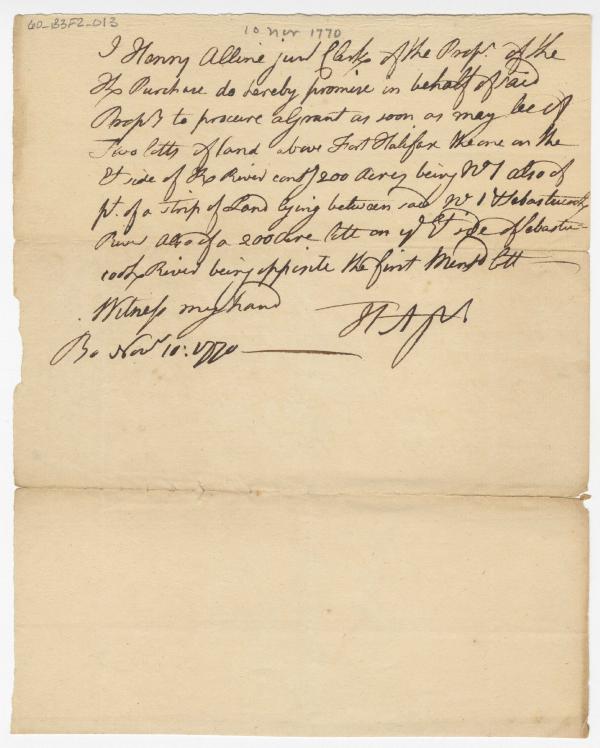 60_B3F2_013
10 Nov 1770
I Henry Alline junr Clerk of the Propr. of the
K Purchase do hereby promise in behalf of said
Proprs to procure a Grant as soon as may be of
Two lotts of land above Fort Halifax the one on the
Et side of K River contg 200 Acres being No 1 also of
pt. of a strip of Land lying between said No 1 & Sebastucook
River also of a 200 acre lott on ye Et side of Sebastu-
cook River being opposite the first Mend lott
Witness my hand
Bo Novr 10: 1770